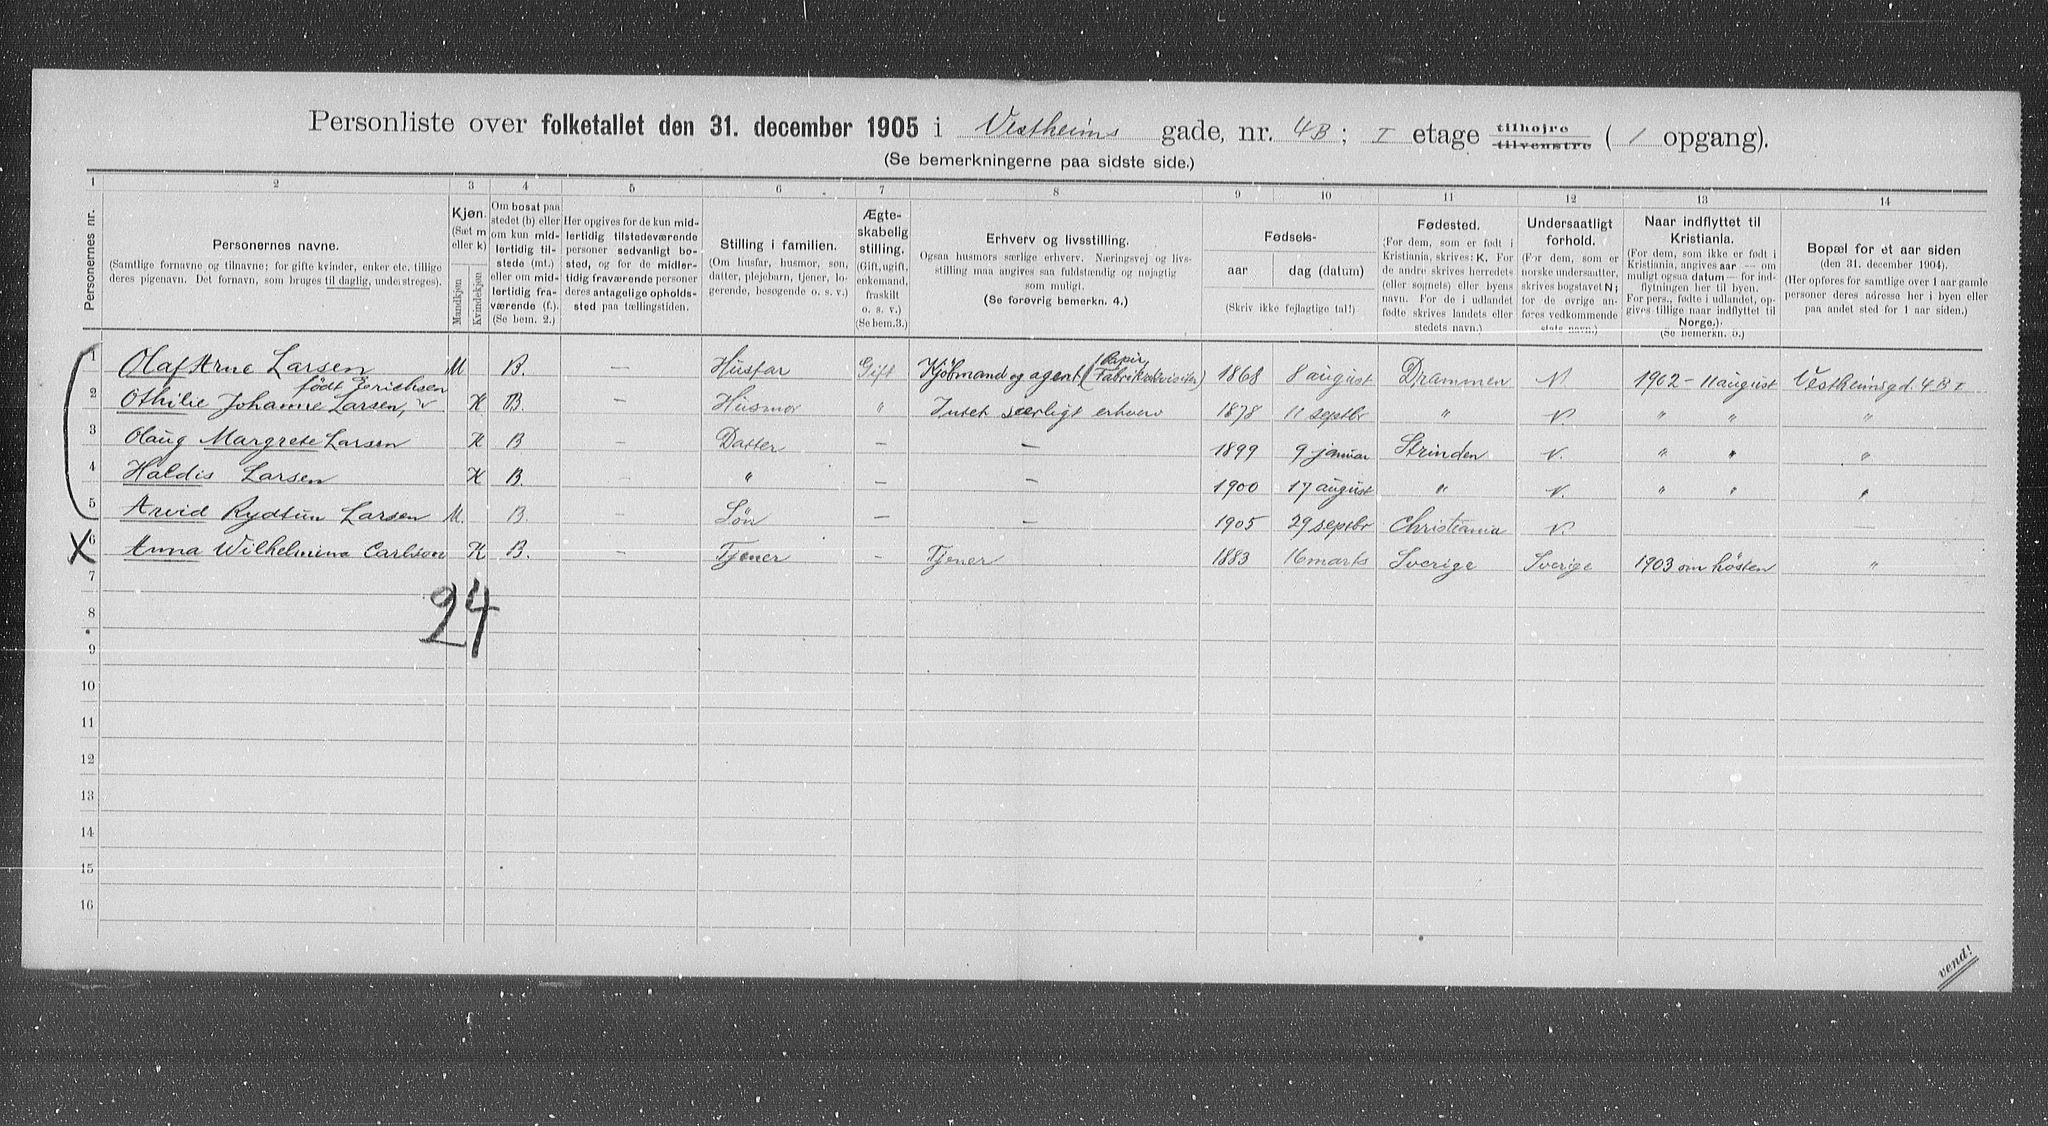 Personliste over folketallet den 31. december 1905 i Vestheims gade, nr. 4B; I etage tilhøjre tilvenstre ( 1 opgang).
(Se bemerkningerne paa sidste side.)
1 2 3 4 5 6 7 8 9 10 11 12 13 14
Personernes nr.
Personernes navne.
(Samtlige fornavne og tilnavne; for gifte kvinder, enker etc. tillige
deres pigenavn. Det fornavn, som bruges til daglig, understreges).
Kjøn.
(Sæt m
eller k)
Mandkjøn
Kvindekjøn
Om bosat paa
stedet (b) eller
om kun mid-
lertidig til-
stede (mt.)
eller om mid-
lertidig fra-
værende (f.).
(Se bem. 2.)
Her opgives for de kun mid-
lertidig tilstedeværende
personer sedvanlig bo-
sted, og for de midler-
tidig fraværende personer
deres antagelige opholds-
sted paa tællingstiden.
Stilling i familien.
(Om husfar, husmor, søn,
datter, plejebarn, tjener, lo-
gerende, besøgende o. s. v.)
Ægte-
skabelig
stilling.
(Gift, ugift,
enkemand,
fraskilt
o. s. v.)
(Se bem.3.)
Erhverv og livsstilling.
Ogsaa husmors særlige erhverv. Næringsvej og livs-
stilling maa angives saa fuldstændig og nøjagtig
som muligt.
(Se forøvrig bemerkn. 4.)
Fødsels-
aar
dag (datum)
(Skriv ikke fejlagtige tal!)
Fødested.
(For dem, som er født i
Kristiania, skrives: K. For
de andre skrives herredets
(eller sognets) eller byens
navn. For de i udlandet
fødte skrives landets eller
stedets navn.)
Undersaatligt
forhold.
(For dem, som er
norske undersaatter,
skrives bogstavet N;
for de øvrige an-
føres vedkommende
stats navn.)
Naar indflyttet til
Kristiania.
(For dem, som ikke er født i
Kristiania, angives aar — om
muligt ogsaa datum — for ind-
flytningen her til byen.
For pers., født i udlandet, op-
gives tillige naar indflyttet til
Norge.)
(Se bemerkn. 5.)
Bopæl for et aar siden
(den 31. december 1904).
(Her opføres for samtlige over 1 aar gamle
personer deres adresse her i byen eller
paa andet sted for 1 aar siden.)
1 Olaf Arne Larsen M B. — Husfar Gift Kjøbmand og agent (Papir 1868 8 august Drammen N. 1902 - 11 august Vestheimsgd. 4 B I
født Erichsen
2 Othilie Johanne Larsen, K B. — Husmor " Intet særligt erhverv 1878 11 septbr " N. " " "
3 Olaug Margrete Larsen K B — Datter — — 1899 9 januar Strinden N. " " "
4 Haldis Larsen K B. — " — — 1900 17 august " N. " " "
5 Arvid Rydtun Larsen M. B. — Søn — — 1905 29 septbr Christiania N. —
X 6 Anna Wilhelmina Carlson K B. — Tjener — Tjener 1883 16 marts Sverige Sverige 1903 om høsten "
7
24
8
9
10
11
12
13
14
15
16
vend!